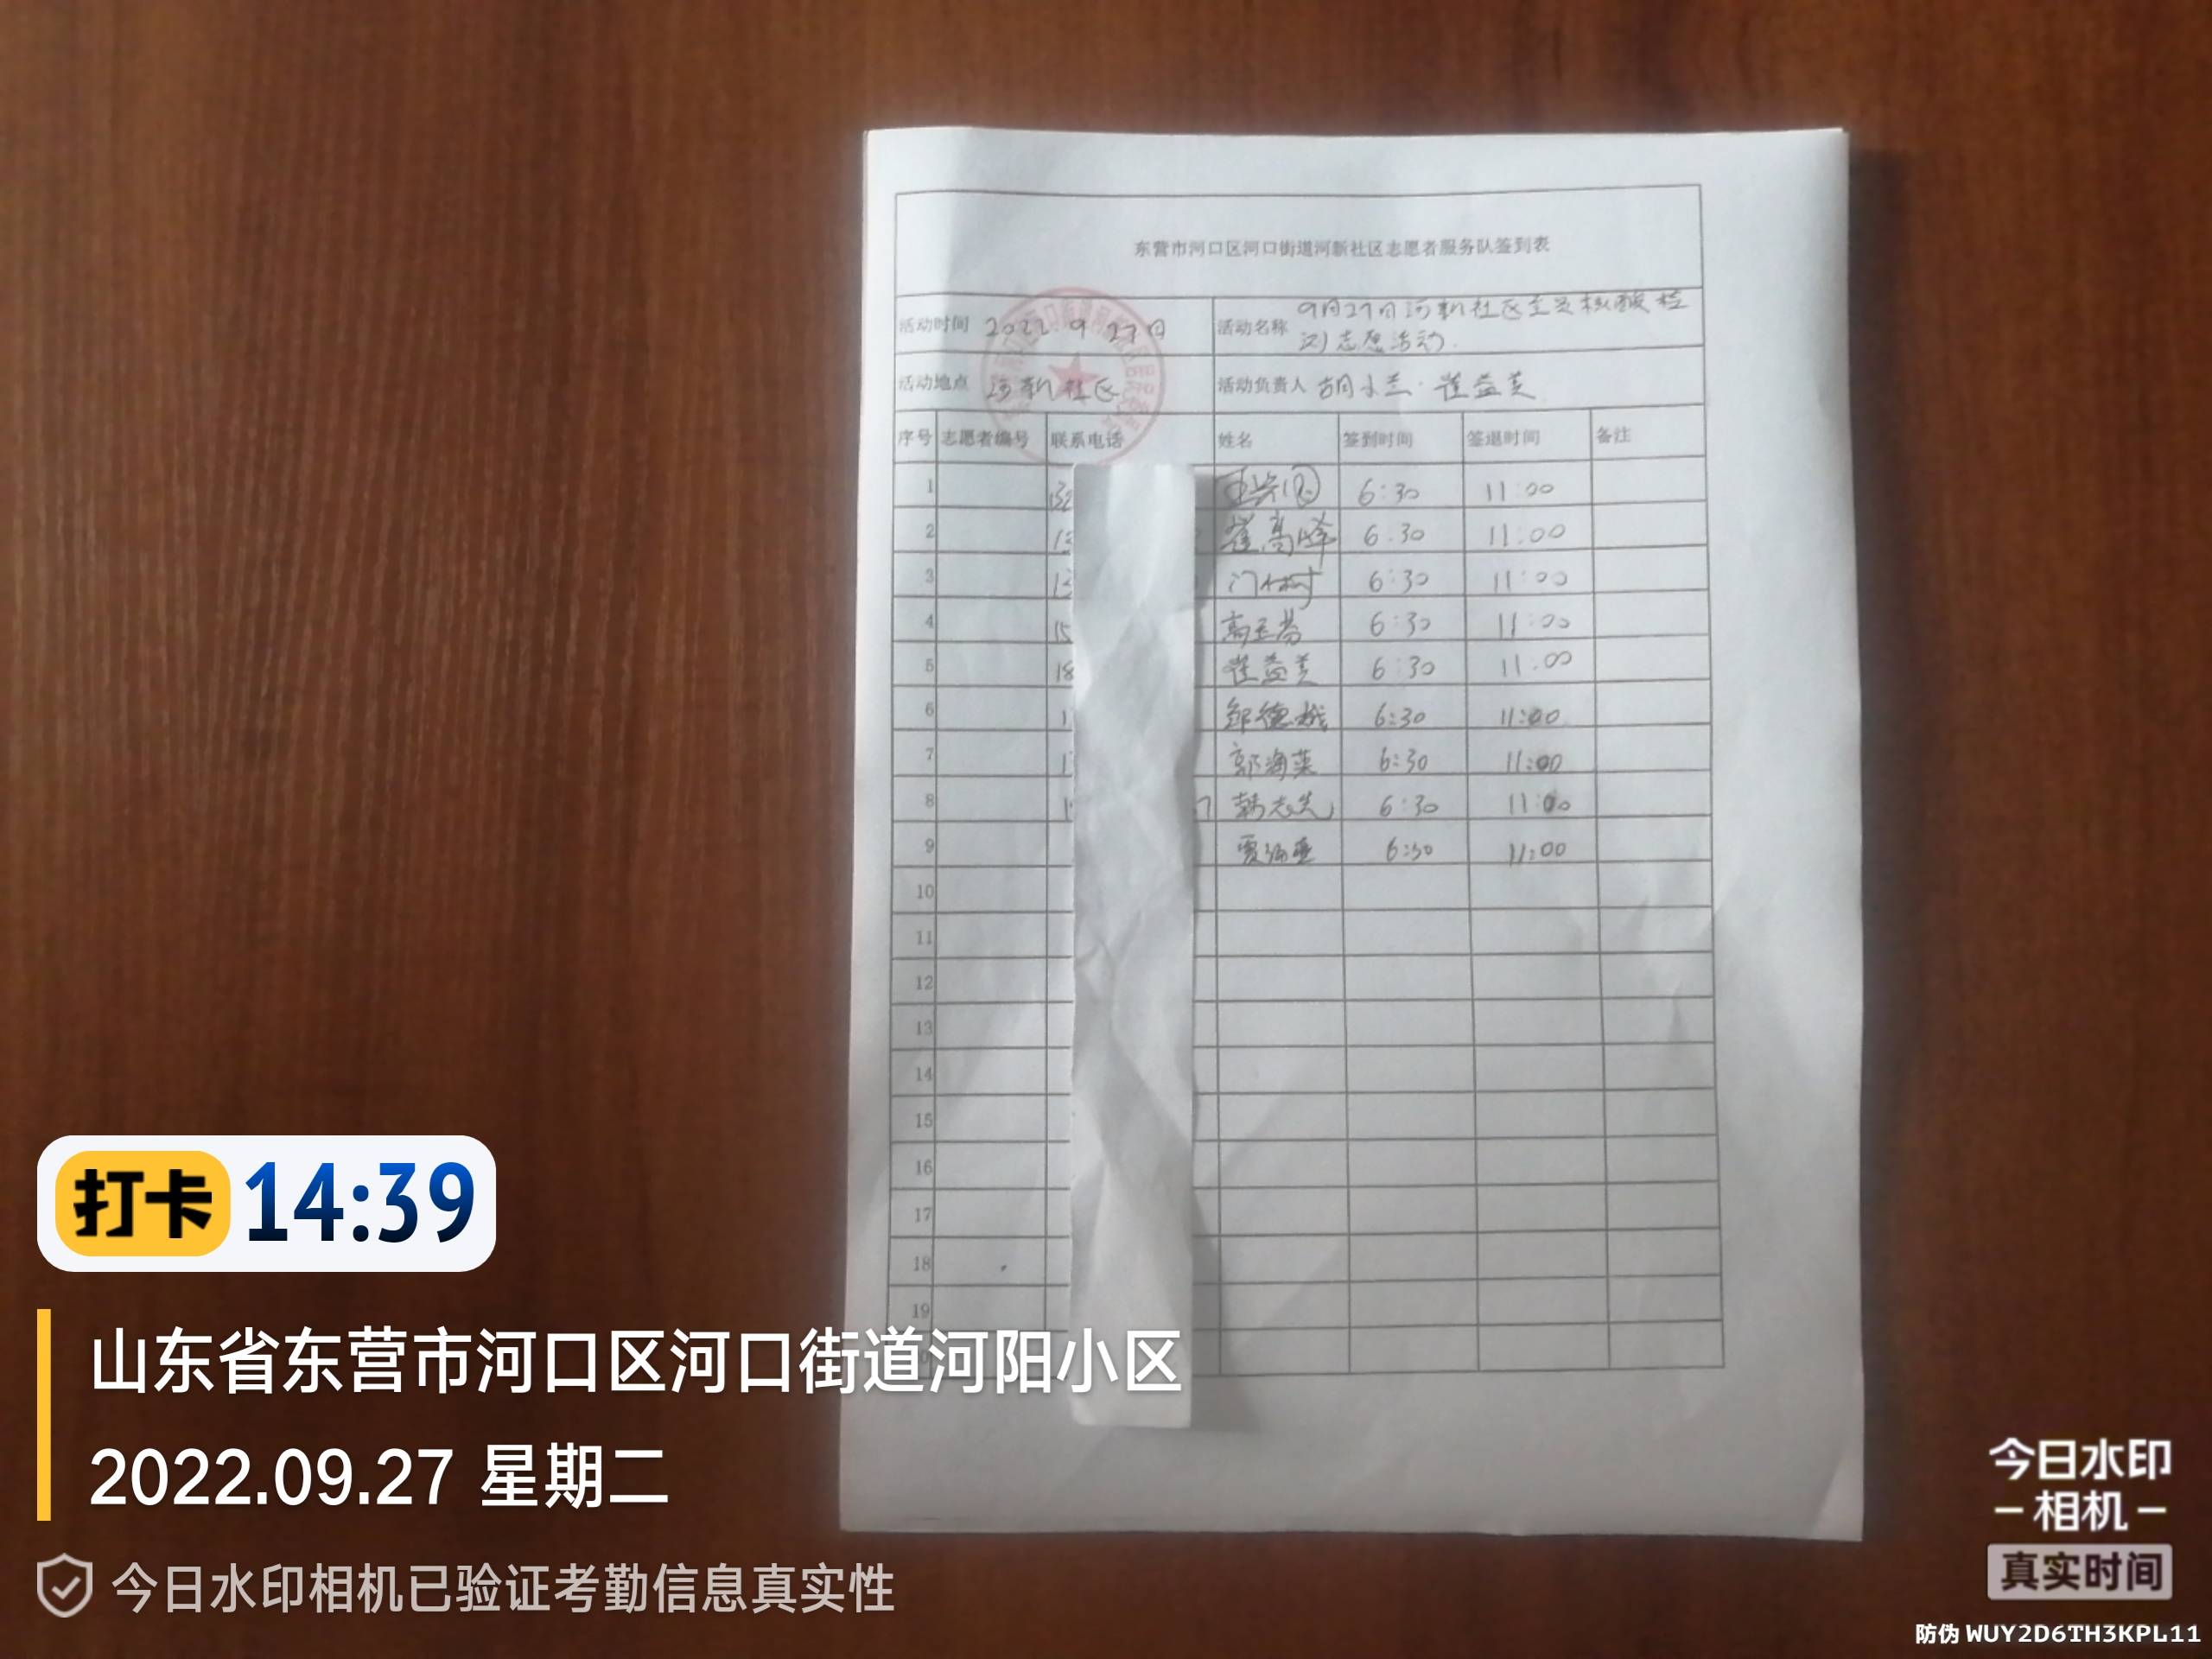 东营市河口区河口街道河新社区志愿者服务队签到表
活动时间 2022.9.27日 活动名称 9月27日河新社区全员核酸检
测志愿活动.
活动地点 河新社区 活动负责人 胡小兰·崔益美
序号 志愿者编号 联系电话 姓名 签到时间 签退时间 备注
1 132 6:30 11:00
2 崔高峰 6:30 11:00
3 门树 6:30 11:00
4 15 高玉芬 6:30 11:00
5 18 崔益美 6:30 11:00
6 1 邹德城 6:30 11:00
7 1 郭海英 6:30 11:00
8 1 7 韩志先 6:30 11:00
9 贾海亚 6:30 11:00
10
11
12
13
14
15
16
17
18
19
打卡 14:39
山东省东营市河口区河口街道河阳小区
2022.09.27 星期二
今日水印相机已验证考勤信息真实性
今日水印
相机
真实时间
防伪 WUY2D6TH3KPL11